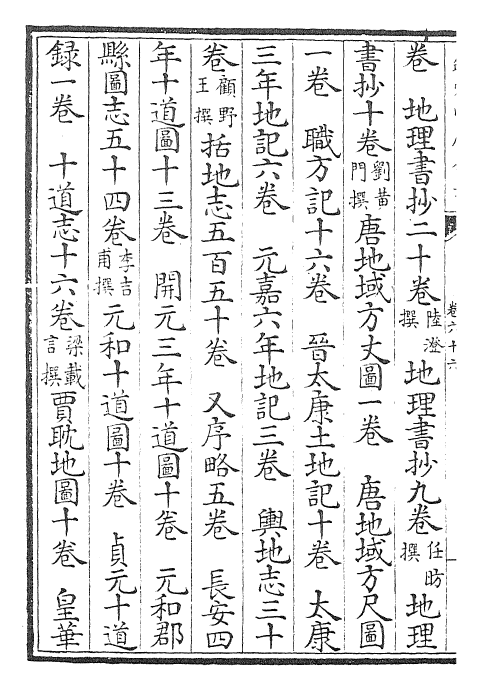 卷　地理書抄二十卷陸澄撰地理書抄九卷任昉撰地理
書抄十卷劉黃門撰唐地域方丈圖一卷　唐地域方尺圖
一卷　職方記十六卷　晉太康土地記十卷　太康
三年地記六卷　元嘉六年地記三卷　輿地志三十
卷顧野王撰括地志五百五十卷　又序略五卷　長安四
年十道圖十三卷　開元三年十道圖十卷　元和郡
縣圖志五十四卷李吉甫撰元和十道圖十卷　貞元十道
録一卷　十道志十六卷梁載言撰賈耽地圖十卷　皇華
卷六十六